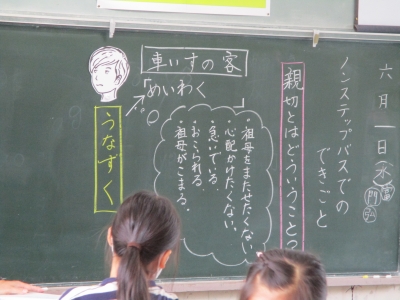 六月一日(水)
ノンステップバスでの
できごと
親切とはどういうこと?
車いすの客
「めいわく
」
・祖母をまたせたくない
・心配かけたくない。
・急いでいる。
・おこられる。
・祖母がこまる。
うなずく